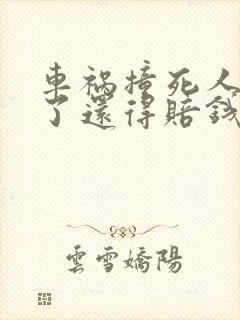 車禍撞死人
了還得賠錢
雲雪嬌陽